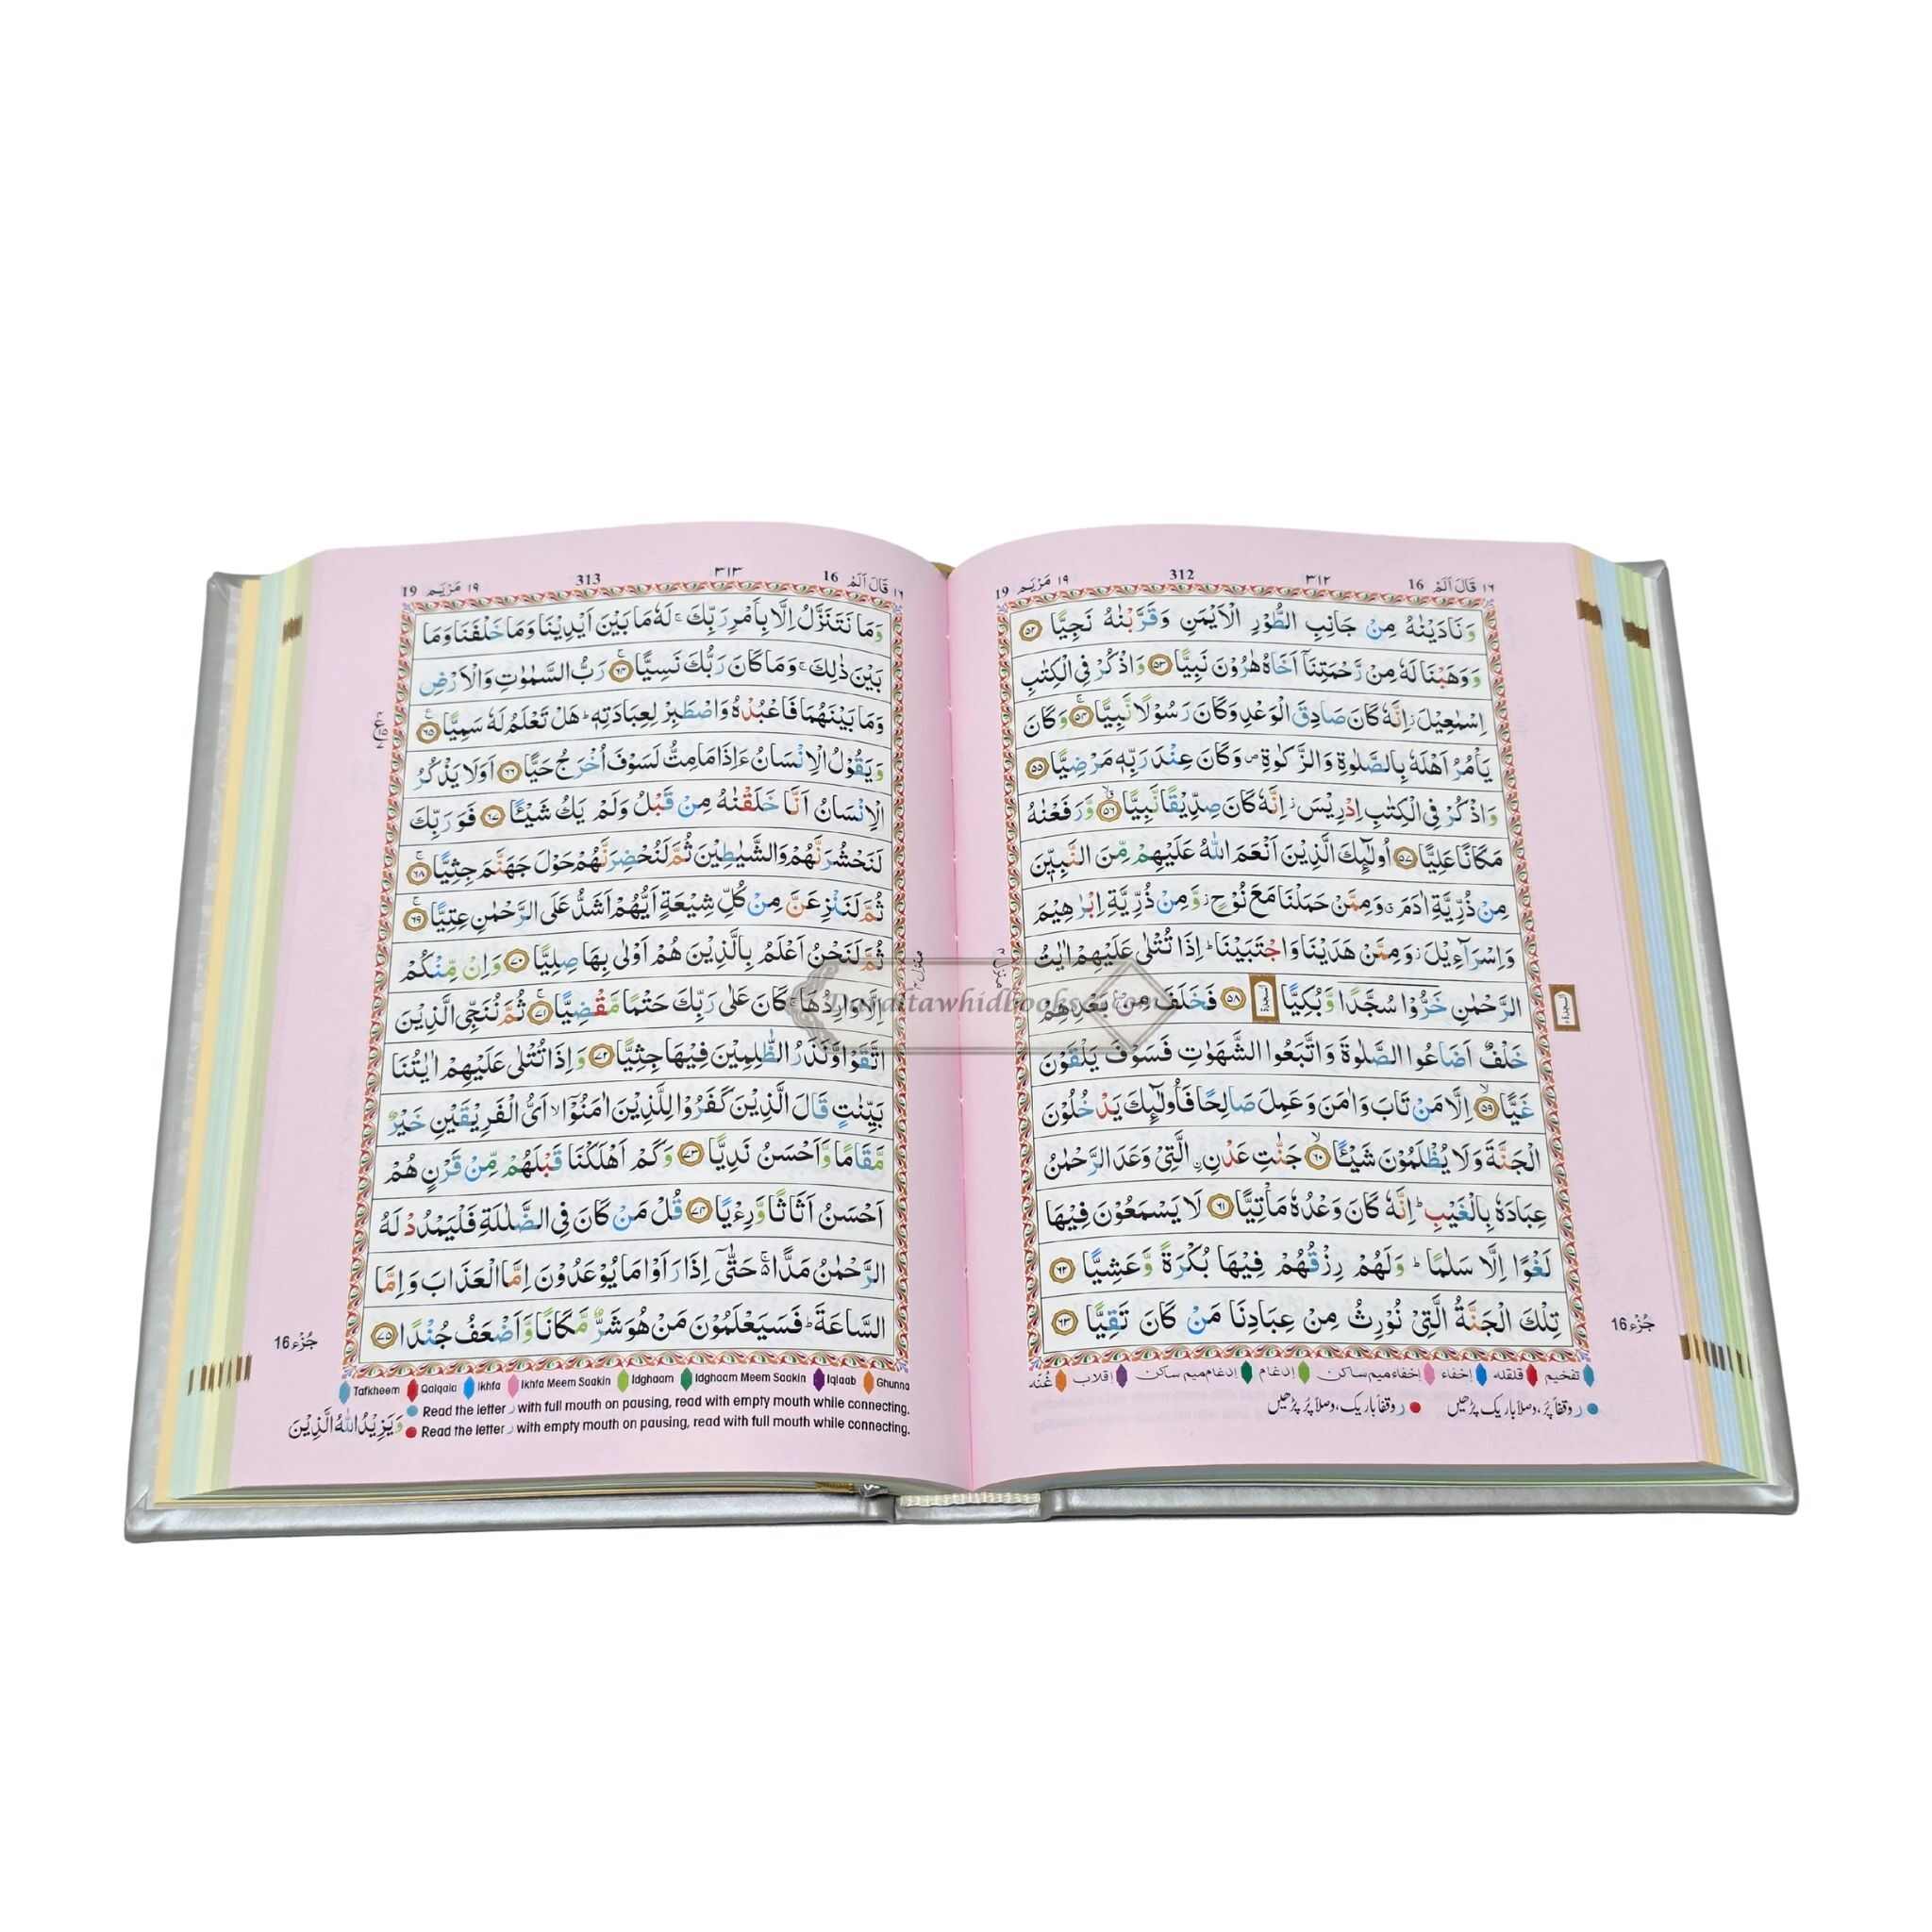 ١٦ قَالَ اَلَمۡ 16 ٣١٢ 312 ١٩ مَرۡيَم 19
وَنَادَيۡنٰهُ مِنۡ جَانِبِ الطُّوۡرِ الۡاَيۡمَنِ وَقَرَّبۡنٰهُ نَجِيًّا ٥٢
وَوَهَبۡنَا لَهٗ مِنۡ رَّحۡمَتِنَاۤ اَخَاهُ هٰرُوۡنَ نَبِيًّا ٥٣ وَاذۡكُرۡ فِى الۡكِتٰبِ
اِسۡمٰعِيۡلَ ز اِنَّهٗ كَانَ صَادِقَ الۡوَعۡدِ وَكَانَ رَسُوۡلًا نَّبِيًّا ٥٤ وَكَانَ
يَاۡمُرُ اَهۡلَهٗ بِالصَّلٰوةِ وَالزَّكٰوةِ ص وَكَانَ عِنۡدَ رَبِّهٖ مَرۡضِيًّا ٥٥
وَاذۡكُرۡ فِى الۡكِتٰبِ اِدۡرِيۡسَ ز اِنَّهٗ كَانَ صِدِّيۡقًا نَّبِيًّا ٥٦ وَّرَفَعۡنٰهُ
مَكَانًا عَلِيًّا ٥٧ اُولٰٓئِكَ الَّذِيۡنَ اَنۡعَمَ اللّٰهُ عَلَيۡهِمۡ مِّنَ النَّبِيّٖنَ
مِنۡ ذُرِّيَّةِ اٰدَمَ ق وَمِمَّنۡ حَمَلۡنَا مَعَ نُوۡحٍ ز وَّمِنۡ ذُرِّيَّةِ اِبۡرٰهِيۡمَ
وَاِسۡرَآءِيۡلَ ز وَمِمَّنۡ هَدَيۡنَا وَاجۡتَبَيۡنَا ط اِذَا تُتۡلٰى عَلَيۡهِمۡ اٰيٰتُ
الرَّحۡمٰنِ خَرُّوۡا سُجَّدًا وَّبُكِيًّا السجدة ٥٨ فَخَلَفَ مِنۡۢ بَعۡدِهِمۡ
خَلۡفٌ اَضَاعُوا الصَّلٰوةَ وَاتَّبَعُوا الشَّهَوٰتِ فَسَوۡفَ يَلۡقَوۡنَ
غَيًّا ٥٩ اِلَّا مَنۡ تَابَ وَاٰمَنَ وَعَمِلَ صَالِحًا فَاُولٰٓئِكَ يَدۡخُلُوۡنَ
الۡجَنَّةَ وَلَا يُظۡلَمُوۡنَ شَيۡئًا ٦٠ جَنّٰتِ عَدۡنِ ۨالَّتِىۡ وَعَدَ الرَّحۡمٰنُ
عِبَادَهٗ بِالۡغَيۡبِ ط اِنَّهٗ كَانَ وَعۡدُهٗ مَاۡتِيًّا ٦١ لَا يَسۡمَعُوۡنَ فِيۡهَا
لَغۡوًا اِلَّا سَلٰمًا ط وَلَهُمۡ رِزۡقُهُمۡ فِيۡهَا بُكۡرَةً وَّعَشِيًّا ٦٢
تِلۡكَ الۡجَنَّةُ الَّتِىۡ نُوۡرِثُ مِنۡ عِبَادِنَا مَنۡ كَانَ تَقِيًّا ٦٣
السجدة
جُزْء 16
تفخيم قلقله إخفاء إخفاءميم ساكن إدغام إدغام ميم ساكن اقلاب غُنّه
ر وقفاً پُر، وصلاً باریک پڑھیں ر وقفاً باریک، وصلاً پُر پڑھیں
١٦ قَالَ اَلَمۡ 16 ٣١٣ 313 ١٩ مَرۡيَم 19
وَمَا نَتَنَزَّلُ اِلَّا بِاَمۡرِ رَبِّكَ ج لَهٗ مَا بَيۡنَ اَيۡدِيۡنَا وَمَا خَلۡفَنَا وَمَا
بَيۡنَ ذٰلِكَ ج وَمَا كَانَ رَبُّكَ نَسِيًّا ٦٤ رَبُّ السَّمٰوٰتِ وَالۡاَرۡضِ
وَمَا بَيۡنَهُمَا فَاعۡبُدۡهُ وَاصۡطَبِرۡ لِعِبَادَتِهٖ ط هَلۡ تَعۡلَمُ لَهٗ سَمِيًّا ٦٥
وَيَقُوۡلُ الۡاِنۡسَانُ ءَاِذَا مَا مِتُّ لَسَوۡفَ اُخۡرَجُ حَيًّا ٦٦ اَوَلَا يَذۡكُرُ
الۡاِنۡسَانُ اَنَّا خَلَقۡنٰهُ مِنۡ قَبۡلُ وَلَمۡ يَكُ شَيۡئًا ٦٧ فَوَرَبِّكَ
لَنَحۡشُرَنَّهُمۡ وَالشَّيٰطِيۡنَ ثُمَّ لَنُحۡضِرَنَّهُمۡ حَوۡلَ جَهَنَّمَ جِثِيًّا ٦٨
ثُمَّ لَنَنۡزِعَنَّ مِنۡ كُلِّ شِيۡعَةٍ اَيُّهُمۡ اَشَدُّ عَلَى الرَّحۡمٰنِ عِتِيًّا ٦٩
ثُمَّ لَنَحۡنُ اَعۡلَمُ بِالَّذِيۡنَ هُمۡ اَوۡلٰى بِهَا صِلِيًّا ٧٠ وَاِنۡ مِّنۡكُمۡ
اِلَّا وَارِدُهَا ج كَانَ عَلٰى رَبِّكَ حَتۡمًا مَّقۡضِيًّا ٧١ ثُمَّ نُنَجِّى الَّذِيۡنَ
اتَّقَوْا وَّنَذَرُ الظّٰلِمِيۡنَ فِيۡهَا جِثِيًّا ٧٢ وَاِذَا تُتۡلٰى عَلَيۡهِمۡ اٰيٰتُنَا
بَيِّنٰتٍ قَالَ الَّذِيۡنَ كَفَرُوۡا لِلَّذِيۡنَ اٰمَنُوۡۤا لا اَىُّ الۡفَرِيۡقَيۡنِ خَيۡرٌ
مَّقَامًا وَّاَحۡسَنُ نَدِيًّا ٧٣ وَكَمۡ اَهۡلَكۡنَا قَبۡلَهُمۡ مِّنۡ قَرۡنٍ هُمۡ
اَحۡسَنُ اَثَاثًا وَّرِءۡيًا ٧٤ قُلۡ مَنۡ كَانَ فِى الضَّلٰلَةِ فَلۡيَمۡدُدۡ لَهُ
الرَّحۡمٰنُ مَدًّا ج حَتّٰٓى اِذَا رَاَوۡا مَا يُوۡعَدُوۡنَ اِمَّا الۡعَذَابَ وَاِمَّا
السَّاعَةَ ط فَسَيَعۡلَمُوۡنَ مَنۡ هُوَ شَرٌّ مَّكَانًا وَّاَضۡعَفُ جُنۡدًا ٧٥
جُزْء 16
Tafkheem Qalqala Ikhfa Ikhfa Meem Saakin Idghaam Idghaam Meem Saakin Iqlaab Ghunna
Read the letter ر with full mouth on pausing, read with empty mouth while connecting.
Read the letter ر with empty mouth on pausing, read with full mouth while connecting.
وَيَزِيۡدُ اللّٰهُ الَّذِيۡنَ
Daraltawhidbooks.com